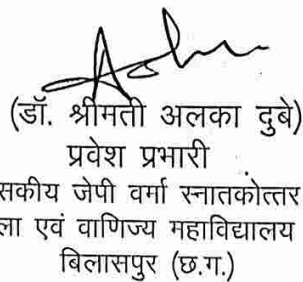 (डॉ. श्रीमती अलका दुबे)
प्रवेश प्रभारी
सकीय जेपी वर्मा स्नातकोत्तर
ला एवं वाणिज्य महाविद्यालय
बिलासपुर (छ.ग.)